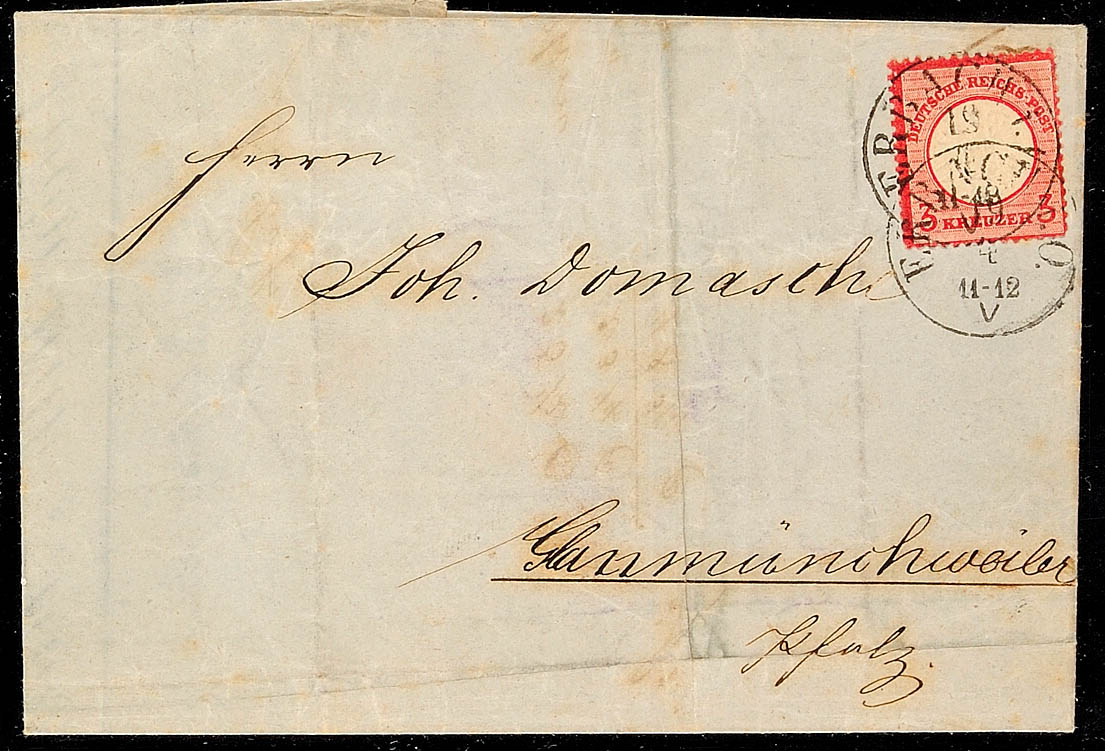 DEUTSCHE REICHS-POST
3 KREUZER 3
11-12
V
Herrn
Joh. Domasch
Glanmünchweiler
Pfalz.